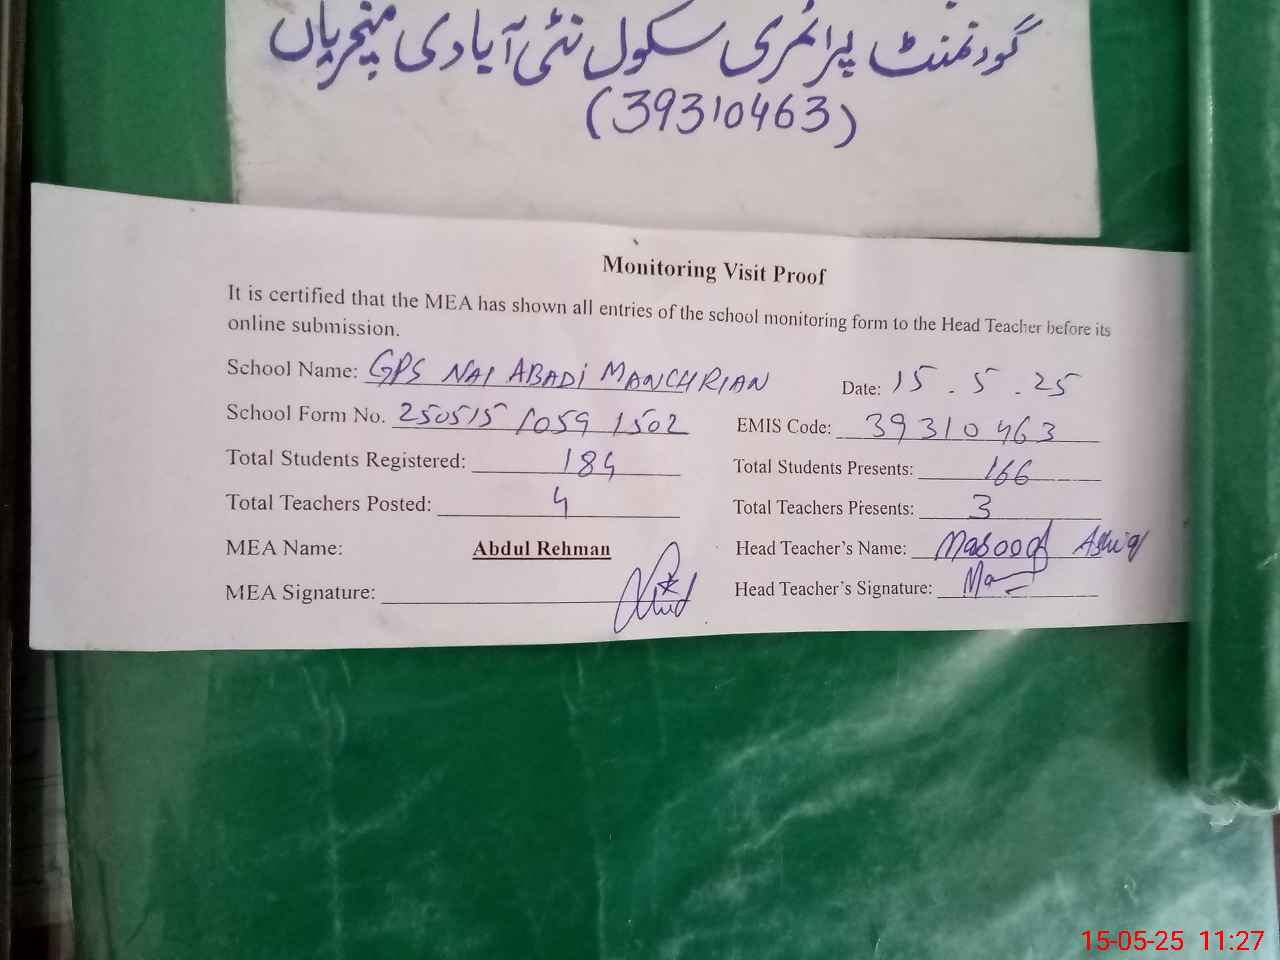 گورنمنٹ پرائمری سکول نئی آبادی منچریاں
(39310463)
Monitoring Visit Proof
It is certified that the MEA has shown all entries of the school monitoring form to the Head Teacher before its
online submission.
School Name: GPS NAI ABADI MANCHRIAN Date: 15 . 5 . 25
School Form No. 250515 1059 1502 EMIS Code: 39310463
Total Students Registered: 184 Total Students Presents: 166
Total Teachers Posted: 4 Total Teachers Presents: 3
MEA Name: Abdul Rehman Head Teacher's Name: Masooq Ashiq
MEA Signature: Head Teacher's Signature:
15-05-25 11:27